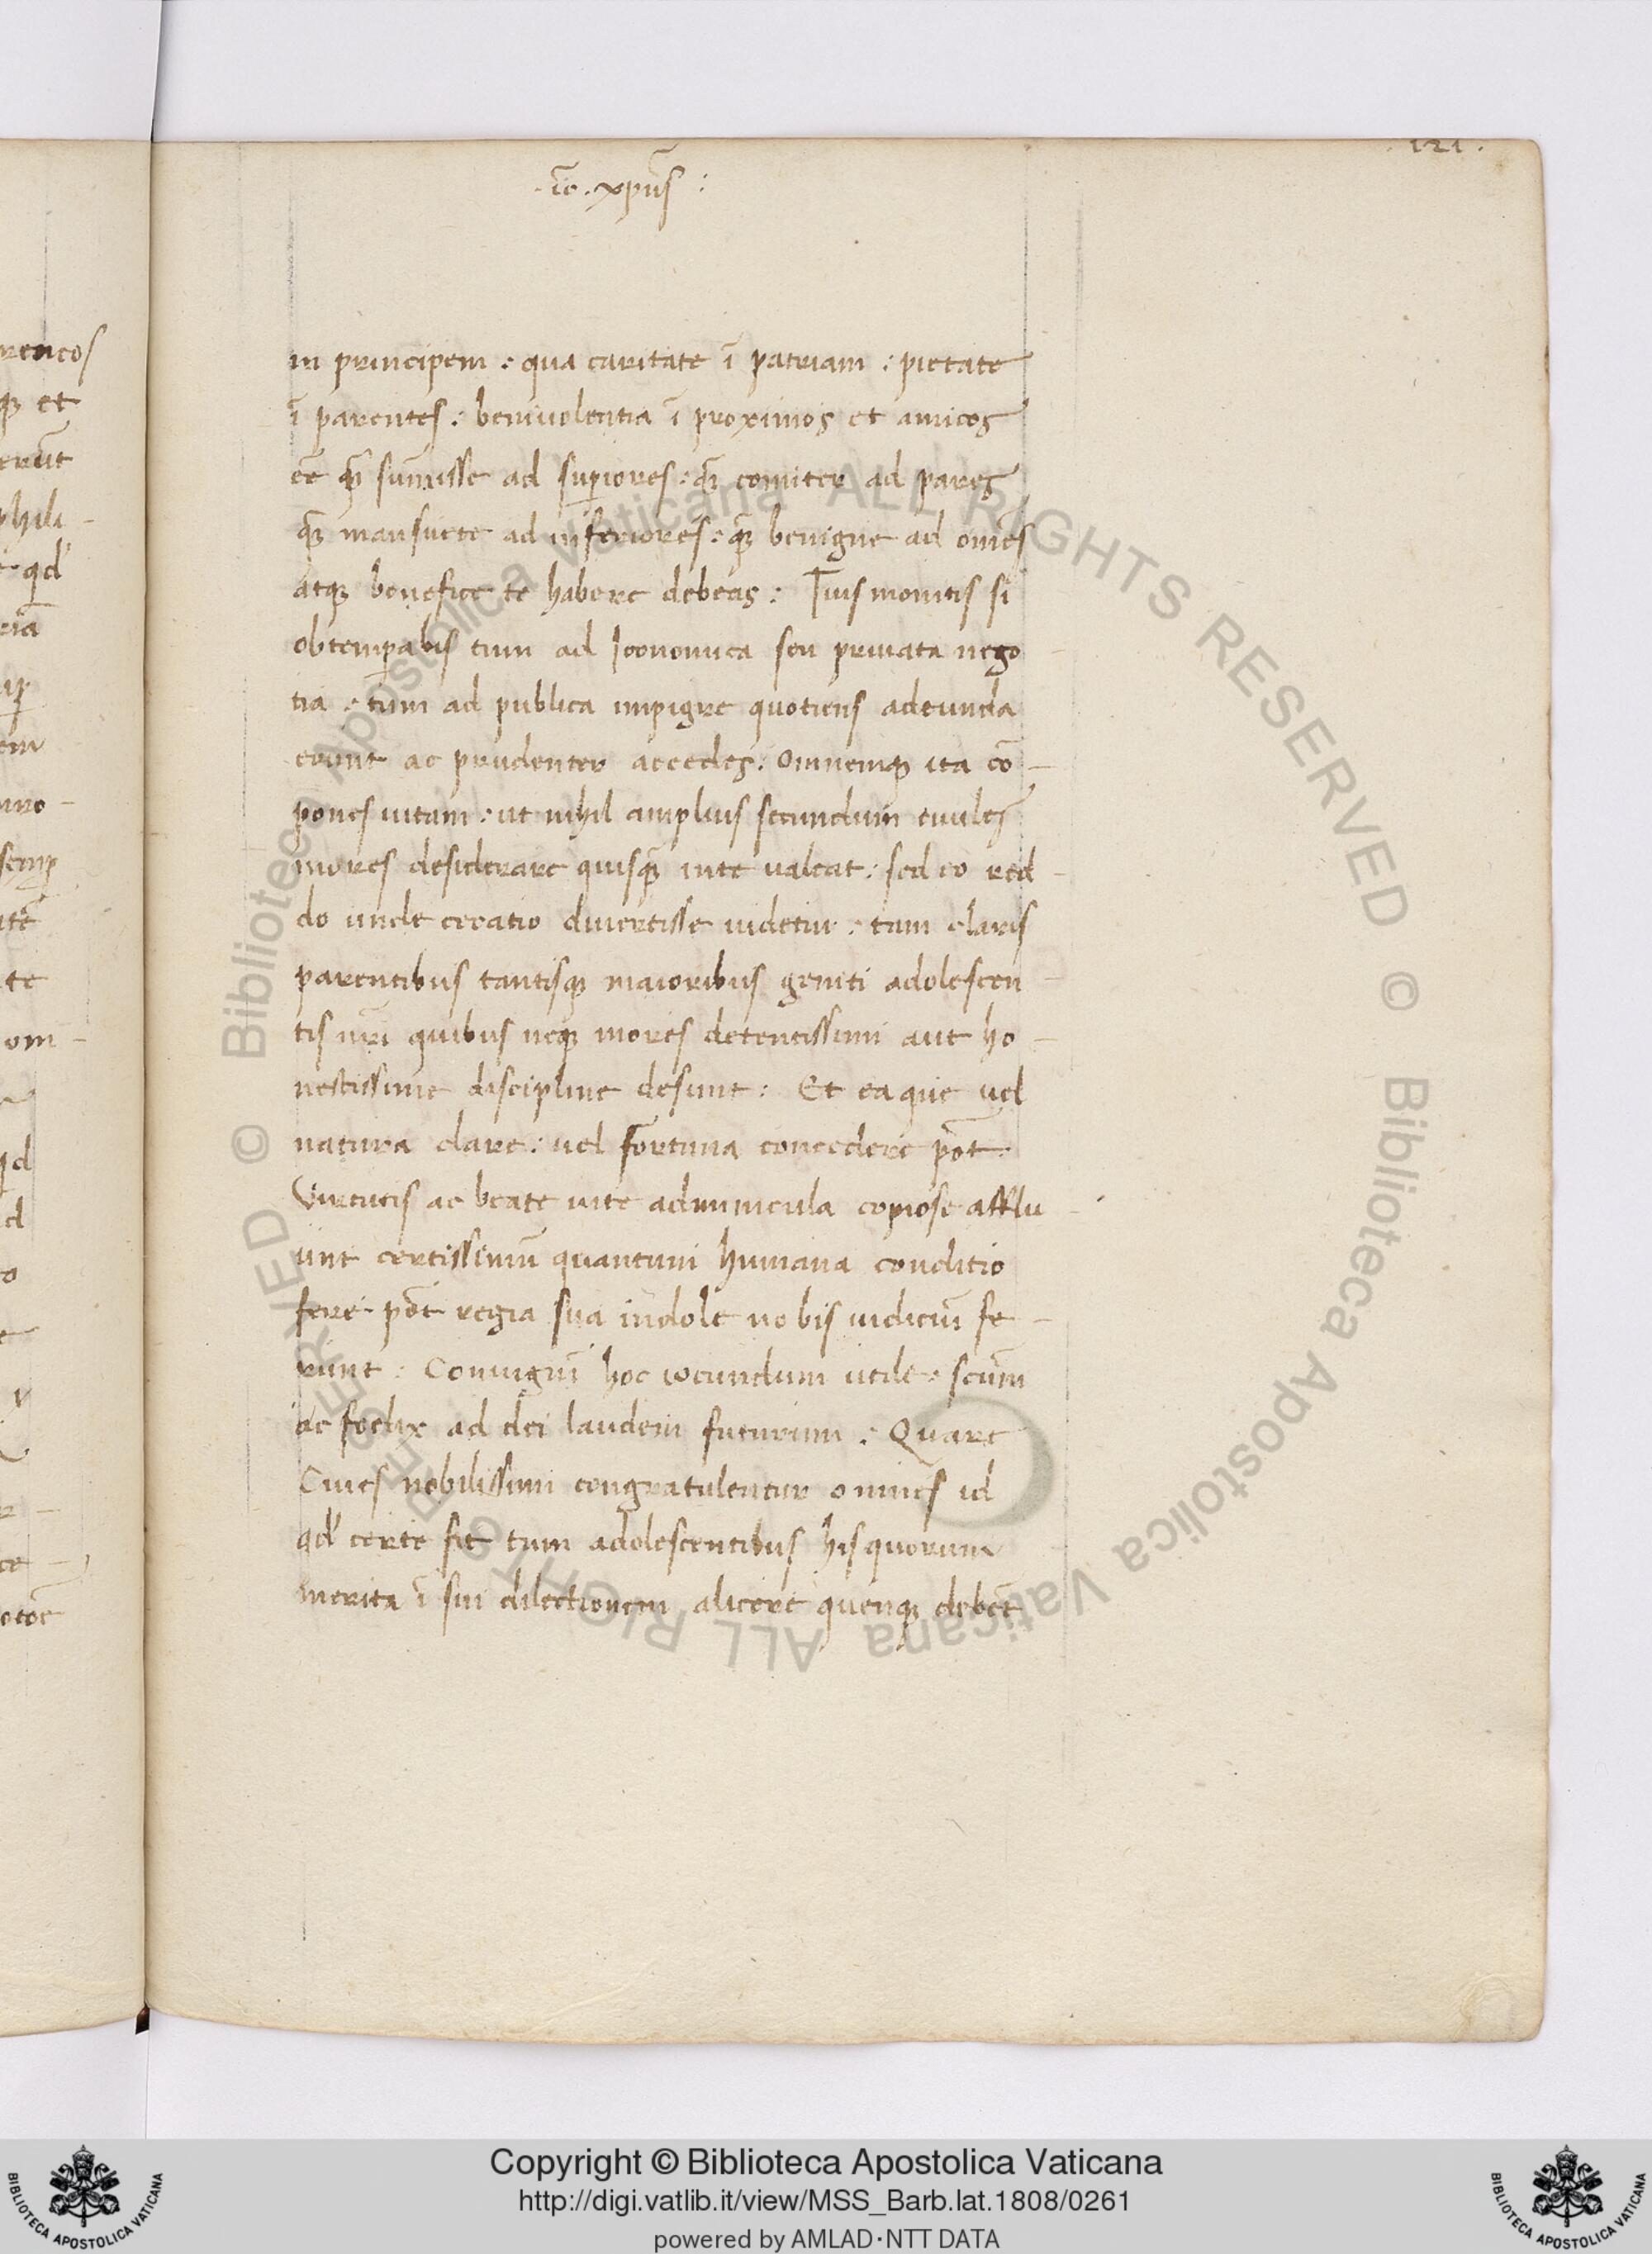 .121.
.ic. xpūs :
in principem : qua caritate ī patriam : pietate
ī parentes : beniuolentia ī proximos et amicos
eē q̄ sum̄isse ad suꝑiores : q̄ comiter ad pares
qȝ mansuete ad inferiores : qȝ benigne ad om̄es
atqȝ benefice te habere debeas : Tuis monitis si
obtemꝑabis tum ad Iconomica seu priuata nego
tia : tum ad publica impigre quotiens adeunda
erunt ac prudenter accedes : Omnemqȝ ita cō
pones uitam : ut nihil amplius secundum ciuiles
mores desiderare quisqȝ inte ualeat : sed eo red
do unde oratio diuertisse uidetur : tam claris
parentibus tantisqȝ maioribus geniti adolescen
tis nr̄i quibus neqȝ mores detentissimi aut ho
nestissime discipline desunt : Et ea que uel
natura dare : uel fortuna concedere pōt
Virtutis ac beate uite adminicula copiose afflu
unt certissimū quantum humana conditio
fere pōt regia sua indole nobis iudiciū fe
runt : Coniugiū hoc iocundum utile : scūm
ac foelix ad dei laudem futurum : Quare
Ciues nobilissimi congratulentur omnes id
qd' certe fit tum adolescentibus his quorum
merita ī sui dilectionem alicere quenqȝ debēt
rencos
qȝ et
erūt
phili
qd'
riā
em
uro
semꝑ
te
om
qd
d
o
v
ce
Biblioteca Apostolica Vaticana ALL RIGHTS RESERVED © Biblioteca Apostolica Vaticana ALL RIGHTS RESERVED ©
Copyright © Biblioteca Apostolica Vaticana
http://digi.vatlib.it/view/MSS_Barb.lat.1808/0261
powered by AMLAD·NTT DATA
BIBLIOTECA APOSTOLICA VATICANA
BIBLIOTECA APOSTOLICA VATICANA